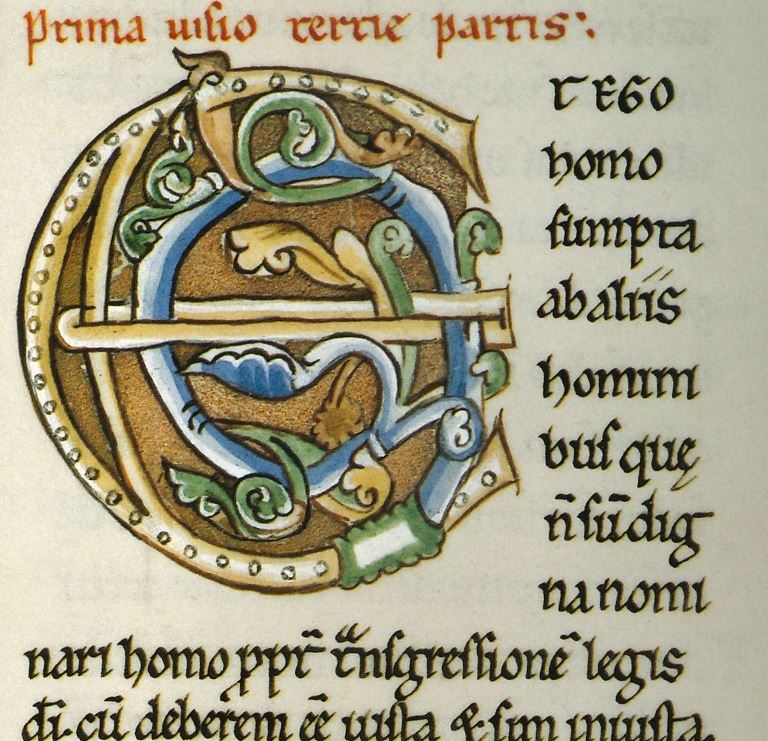 prima uisio tertie partis
ET EGO
homo
sumpta
ab aliis
homini
bus quę
n̄ sū dig
na nomi
nari homo ꝓpt̄ t̃nsgressionē legis
dī. cū deberem eē iusta & sum iniusta.